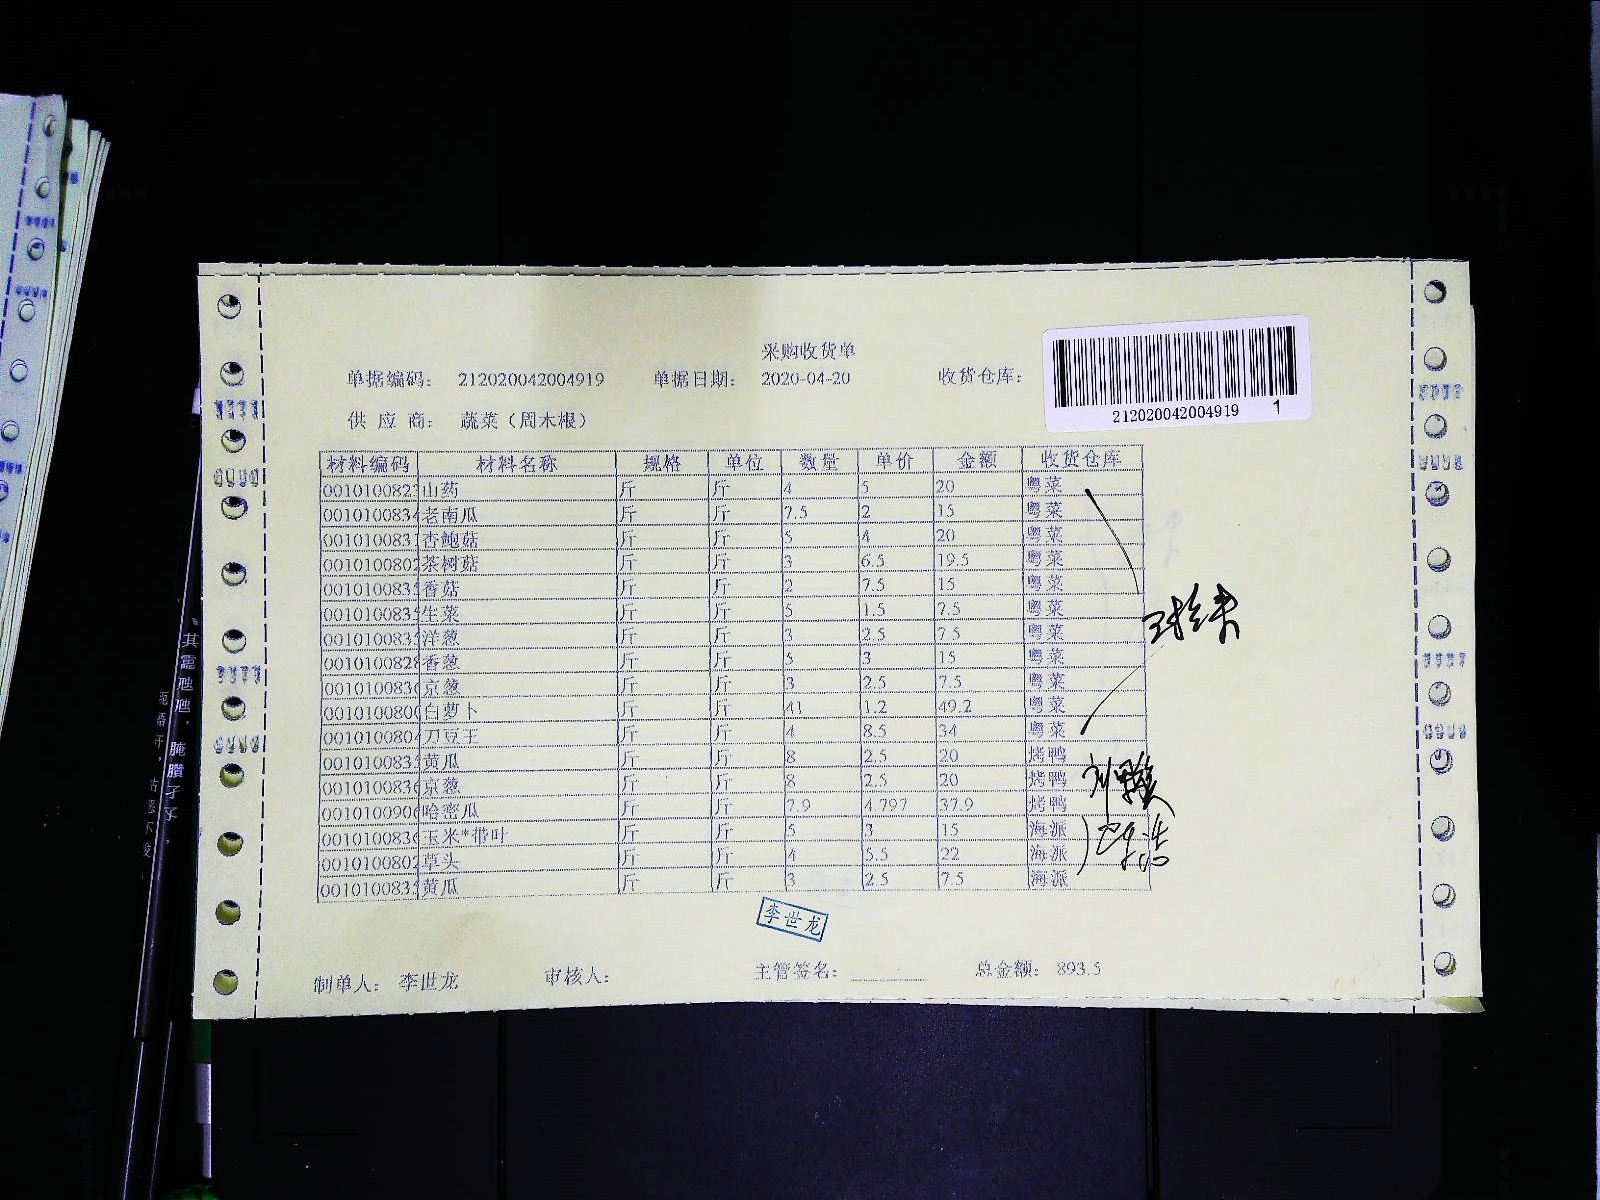 采购收货单
单据编码： 212020042004919 单据日期： 2020-04-20 收货仓库：
212020042004919 1
供 应 商： 蔬菜（周木根）
材料编码 材料名称 规格 单位 数量 单价 金额 收货仓库
001010082 山药 斤 斤 4 5 20 粤菜
001010083 老南瓜 斤 斤 7.5 2 15 粤菜
001010083 杏鲍菇 斤 斤 5 4 20 粤菜
001010080 茶树菇 斤 斤 3 6.5 19.5 粤菜
001010083 香菇 斤 斤 2 7.5 15 粤菜
001010083 生菜 斤 斤 5 1.5 7.5 粤菜
001010083 洋葱 斤 斤 3 2.5 7.5 粤菜
001010082 香葱 斤 斤 5 3 15 粤菜
001010083 京葱 斤 斤 3 2.5 7.5 粤菜
001010080 白萝卜 斤 斤 41 1.2 49.2 粤菜
001010080 刀豆王 斤 斤 4 8.5 34 粤菜
001010083 黄瓜 斤 斤 8 2.5 20 烤鸭
001010083 京葱 斤 斤 8 2.5 20 烤鸭
001010090 哈密瓜 斤 斤 7.9 4.797 37.9 烤鸭
001010083 玉米*带叶 斤 斤 5 3 15 海派
001010080 草头 斤 斤 4 5.5 22 海派
001010083 黄瓜 斤 斤 3 2.5 7.5 海派
李世龙
制单人： 李世龙 审核人： 主管签名： 总金额： 893.5